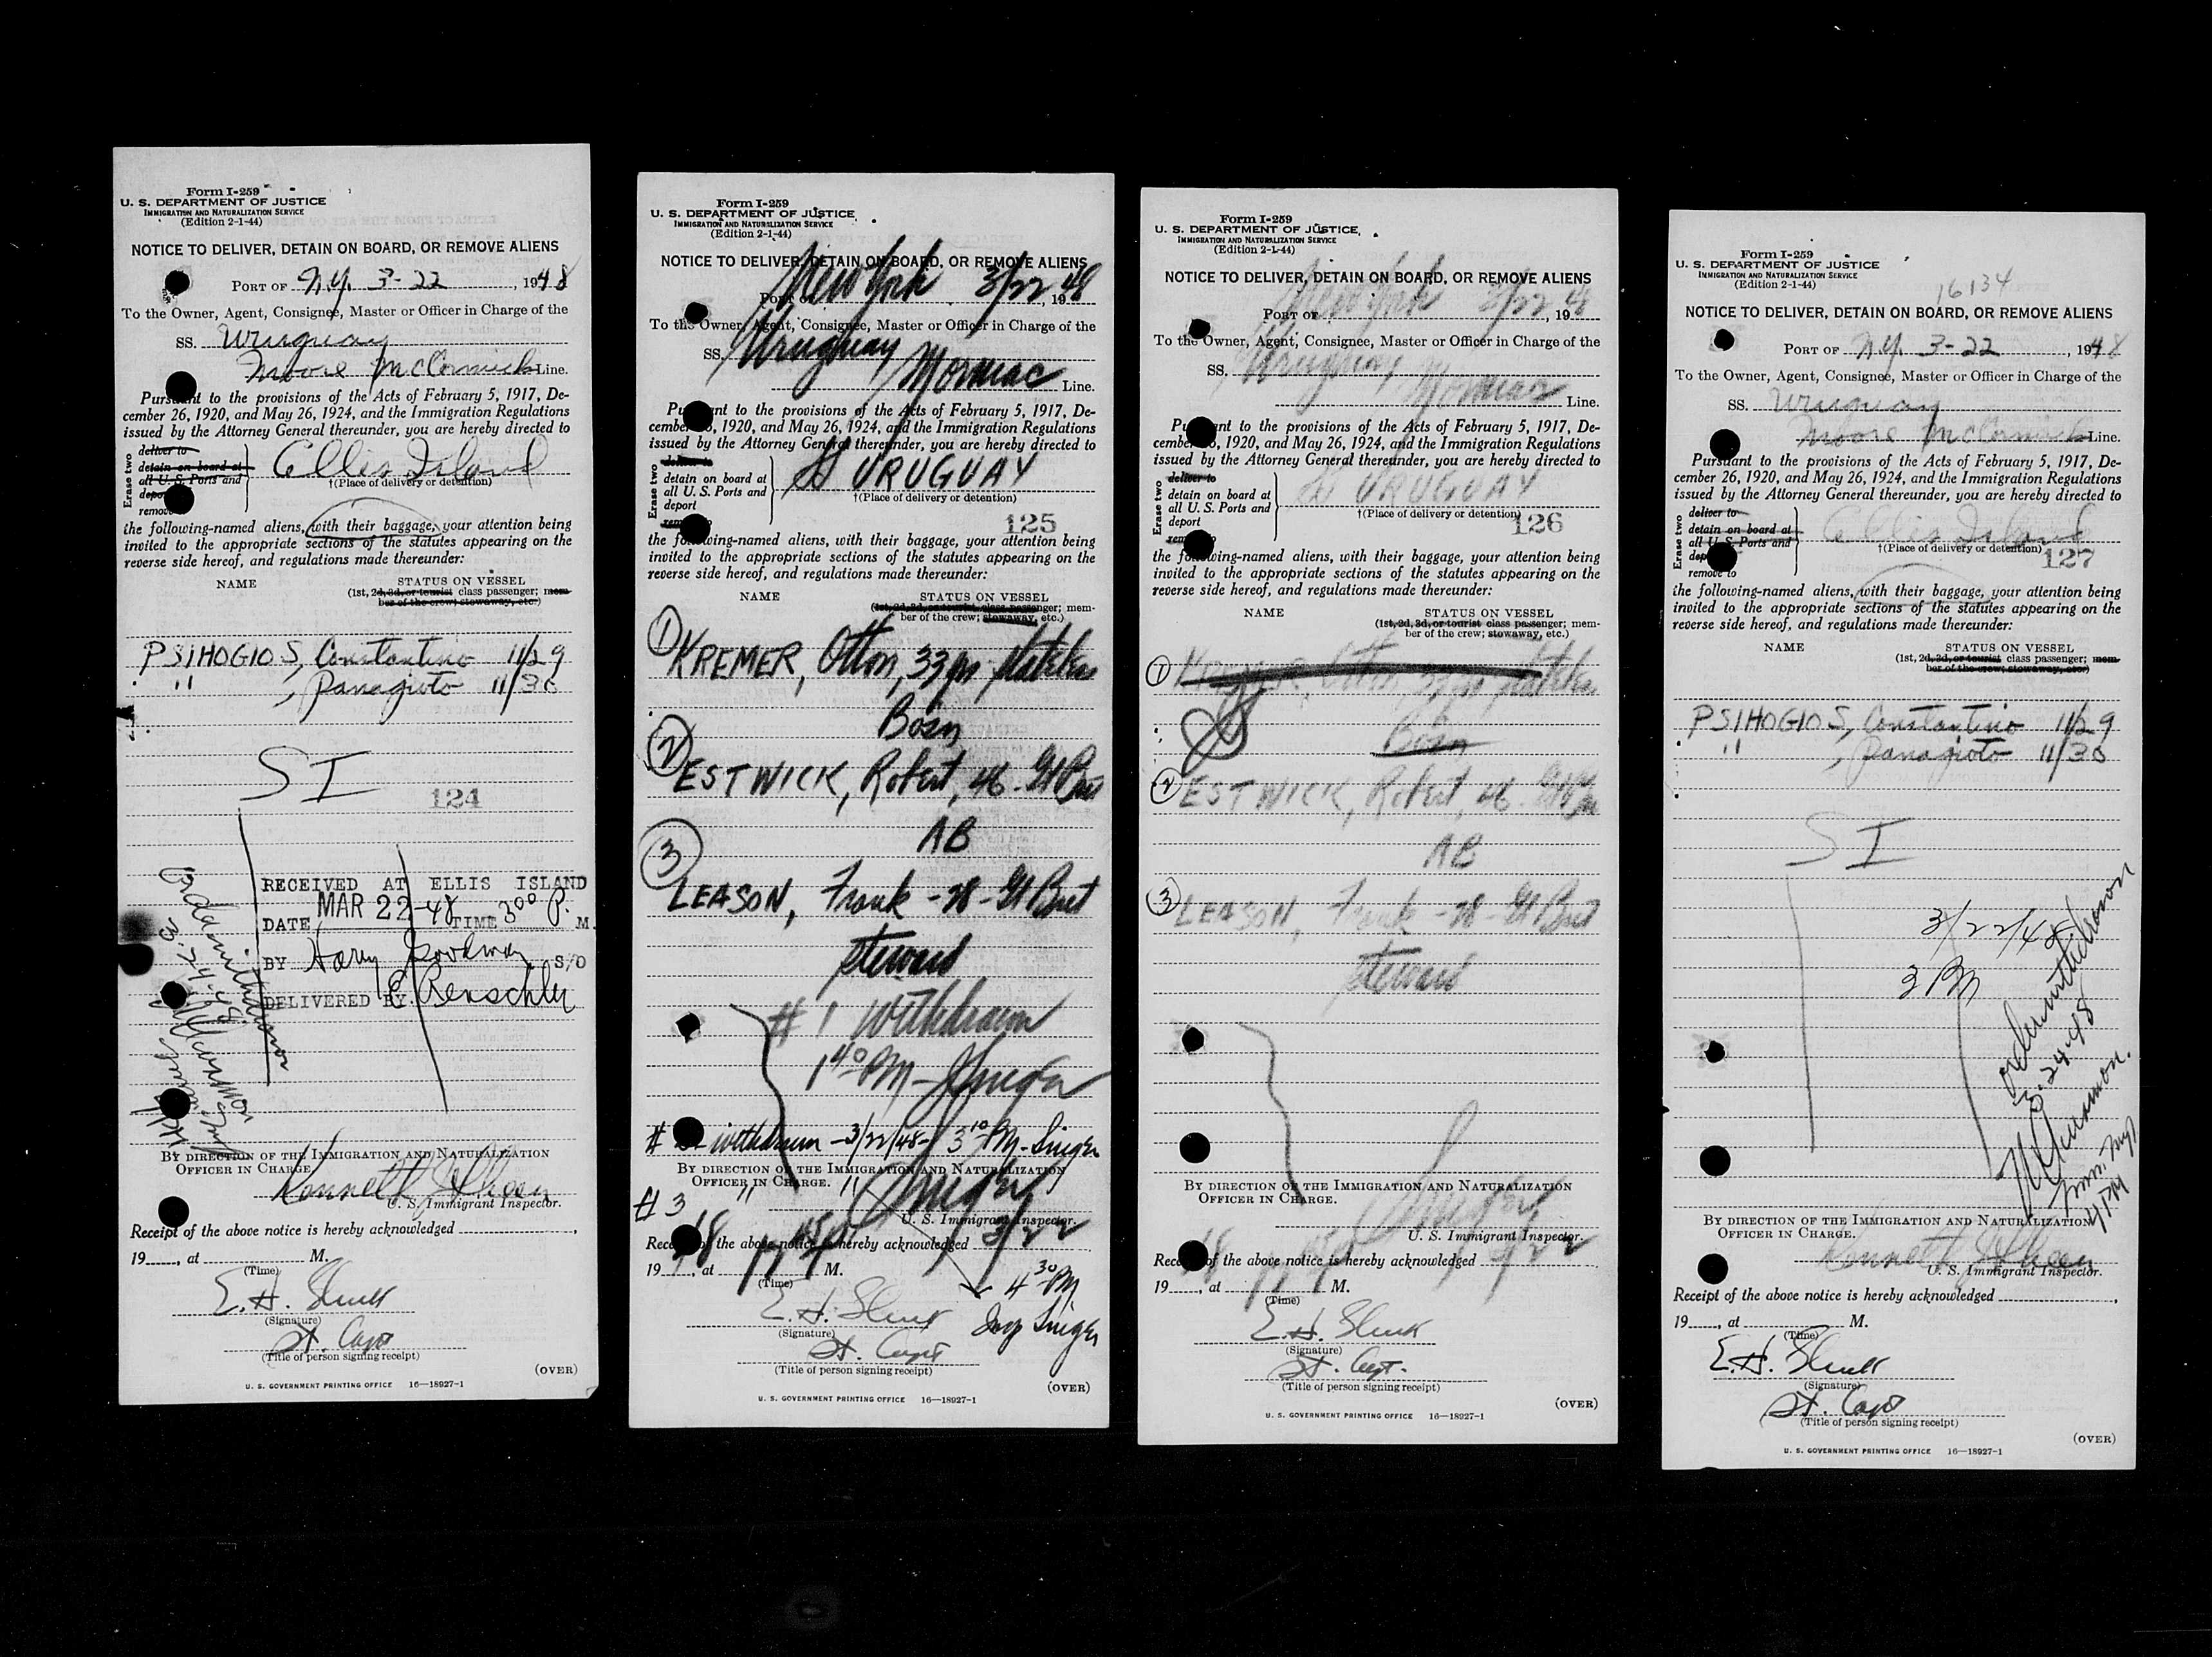 Form I-259
U. S. DEPARTMENT OF JUSTICE
IMMIGRATION AND NATURALIZATION SERVICE
(Edition 2-1-44)
NOTICE TO DELIVER, DETAIN ON BOARD, OR REMOVE ALIENS
PORT OF N.Y. 3-22, 1948
To the Owner, Agent, Consignee, Master or Officer in Charge of the
SS. Uruguay
Moore McCormick Line.
Pursuant to the provisions of the Acts of February 5, 1917, De-
cember 26, 1920, and May 26, 1924, and the Immigration Regulations
issued by the Attorney General thereunder, you are hereby directed to
Erase two
deliver to
detain on board at
all U. S. Ports and
deport
remove to
Ellis Island
†(Place of delivery or detention)
the following-named aliens, with their baggage, your attention being
invited to the appropriate sections of the statutes appearing on the
reverse side hereof, and regulations made thereunder:
NAME STATUS ON VESSEL
(1st, 2d, 3d, or tourist class passenger; mem-
ber of the crew; stowaway, etc.)
PSIHOGIOS, Constantino 11/29
" , Panagioto 11/30
SI
124
RECEIVED AT ELLIS ISLAND
DATE MAR 22-48 TIME 3 00 P. M.
BY Harry S/O
DELIVERED BY E Renschler
3-24-48
BY DIRECTION OF THE IMMIGRATION AND NATURALIZATION
OFFICER IN CHARGE
Kenneth
U. S. Immigrant Inspector.
Receipt of the above notice is hereby acknowledged
19, at M.
(Time)
E.H. Sluck
(Signature)
St. Capt
(Title of person signing receipt)
(OVER)
U. S. GOVERNMENT PRINTING OFFICE 16—18927-1
Form I-259
U. S. DEPARTMENT OF JUSTICE
IMMIGRATION AND NATURALIZATION SERVICE
(Edition 2-1-44)
NOTICE TO DELIVER, DETAIN ON BOARD, OR REMOVE ALIENS
PORT OF New York 3/22, 1948
To the Owner, Agent, Consignee, Master or Officer in Charge of the
SS. Uruguay
Mormac Line.
Pursuant to the provisions of the Acts of February 5, 1917, De-
cember 26, 1920, and May 26, 1924, and the Immigration Regulations
issued by the Attorney General thereunder, you are hereby directed to
Erase two
deliver to
detain on board at
all U. S. Ports and
deport
remove to
SS URUGUAY
†(Place of delivery or detention)
125
the following-named aliens, with their baggage, your attention being
invited to the appropriate sections of the statutes appearing on the
reverse side hereof, and regulations made thereunder:
NAME STATUS ON VESSEL
(1st, 2d, 3d, or tourist class passenger; mem-
ber of the crew; stowaway, etc.)
1 KREMER, Otton, 33
Bosn
2 ESTWICK, Robert, 46 - Gt Brit
AB
3 LEASON, Frank - 28 - Gt Brit
steward
# 1 withdrawn
1 40 PM - Singer
# 2 withdrawn - 3/22/48 - 3 10 PM - Singer
BY DIRECTION OF THE IMMIGRATION AND NATURALIZATION
OFFICER IN CHARGE.
# 3 " "
Singer
U. S. Immigrant Inspector.
Receipt of the above notice is hereby acknowledged 3/22
19, at M.
(Time)
4 30 PM
Insp Singer
E.H. Sluck
(Signature)
St. Capt
(Title of person signing receipt)
(OVER)
U. S. GOVERNMENT PRINTING OFFICE 16—18927-1
Form I-259
U. S. DEPARTMENT OF JUSTICE
IMMIGRATION AND NATURALIZATION SERVICE
(Edition 2-1-44)
NOTICE TO DELIVER, DETAIN ON BOARD, OR REMOVE ALIENS
PORT OF New York 3/22, 1948
To the Owner, Agent, Consignee, Master or Officer in Charge of the
SS. Uruguay
Mormac Line.
Pursuant to the provisions of the Acts of February 5, 1917, De-
cember 26, 1920, and May 26, 1924, and the Immigration Regulations
issued by the Attorney General thereunder, you are hereby directed to
Erase two
deliver to
detain on board at
all U. S. Ports and
deport
remove to
SS URUGUAY
†(Place of delivery or detention)
126
the following-named aliens, with their baggage, your attention being
invited to the appropriate sections of the statutes appearing on the
reverse side hereof, and regulations made thereunder:
NAME STATUS ON VESSEL
(1st, 2d, 3d, or tourist class passenger; mem-
ber of the crew; stowaway, etc.)
1 KREMER, Otton, 33
Bosn
2 ESTWICK, Robert, 46 - Gt Brit
AB
3 LEASON, Frank - 28 - Gt Brit
steward
BY DIRECTION OF THE IMMIGRATION AND NATURALIZATION
OFFICER IN CHARGE.
Singer
U. S. Immigrant Inspector.
Receipt of the above notice is hereby acknowledged 3/22
19, at M.
(Time)
E.H. Sluck
(Signature)
St. Capt.
(Title of person signing receipt)
(OVER)
U. S. GOVERNMENT PRINTING OFFICE 16—18927-1
Form I-259
U. S. DEPARTMENT OF JUSTICE
IMMIGRATION AND NATURALIZATION SERVICE
(Edition 2-1-44)
16134
NOTICE TO DELIVER, DETAIN ON BOARD, OR REMOVE ALIENS
PORT OF N.Y. 3-22, 1948
To the Owner, Agent, Consignee, Master or Officer in Charge of the
SS. Uruguay
Moore McCormick Line.
Pursuant to the provisions of the Acts of February 5, 1917, De-
cember 26, 1920, and May 26, 1924, and the Immigration Regulations
issued by the Attorney General thereunder, you are hereby directed to
Erase two
deliver to
detain on board at
all U. S. Ports and
deport
remove to
Ellis Island
†(Place of delivery or detention)
127
the following-named aliens, with their baggage, your attention being
invited to the appropriate sections of the statutes appearing on the
reverse side hereof, and regulations made thereunder:
NAME STATUS ON VESSEL
(1st, 2d, 3d, or tourist class passenger; mem-
ber of the crew; stowaway, etc.)
PSIHOGIOS, Constantino 11/29
" , Panagioto 11/30
SI
3/22/48
3 PM
order withdrawn
3-24-48
4 PM
BY DIRECTION OF THE IMMIGRATION AND NATURALIZATION
OFFICER IN CHARGE.
Kenneth
U. S. Immigrant Inspector.
Receipt of the above notice is hereby acknowledged
19, at M.
(Time)
E.H. Sluck
(Signature)
St. Capt
(Title of person signing receipt)
(OVER)
U. S. GOVERNMENT PRINTING OFFICE 16—18927-1